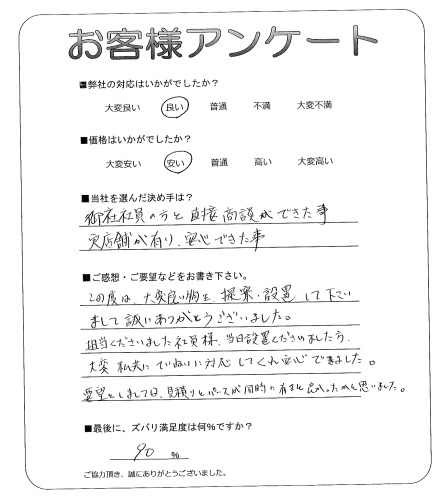 お客様アンケート
■弊社の対応はいかがでしたか？
大変良い 良い 普通 不満 大変不満
■価格はいかがでしたか？
大変安い 安い 普通 高い 大変高い
■当社を選んだ決め手は？
御社社員の方と直接商談ができた事
実店舗が有り、安心できた事
■ご感想・ご要望などをお書き下さい。
この度は、大変良い物を、提案・設置して下さい
まして誠にありがとうございました。
担当くださいました社員様、当日設置くださいました方、
大変 にていねいに対応してくれ安心できました。
要望としましては、見積りとパースが同時に有ると良かったかと思いました。
■最後に、ズバリ満足度は何%ですか？
90 %
ご協力頂き、誠にありがとうございました。